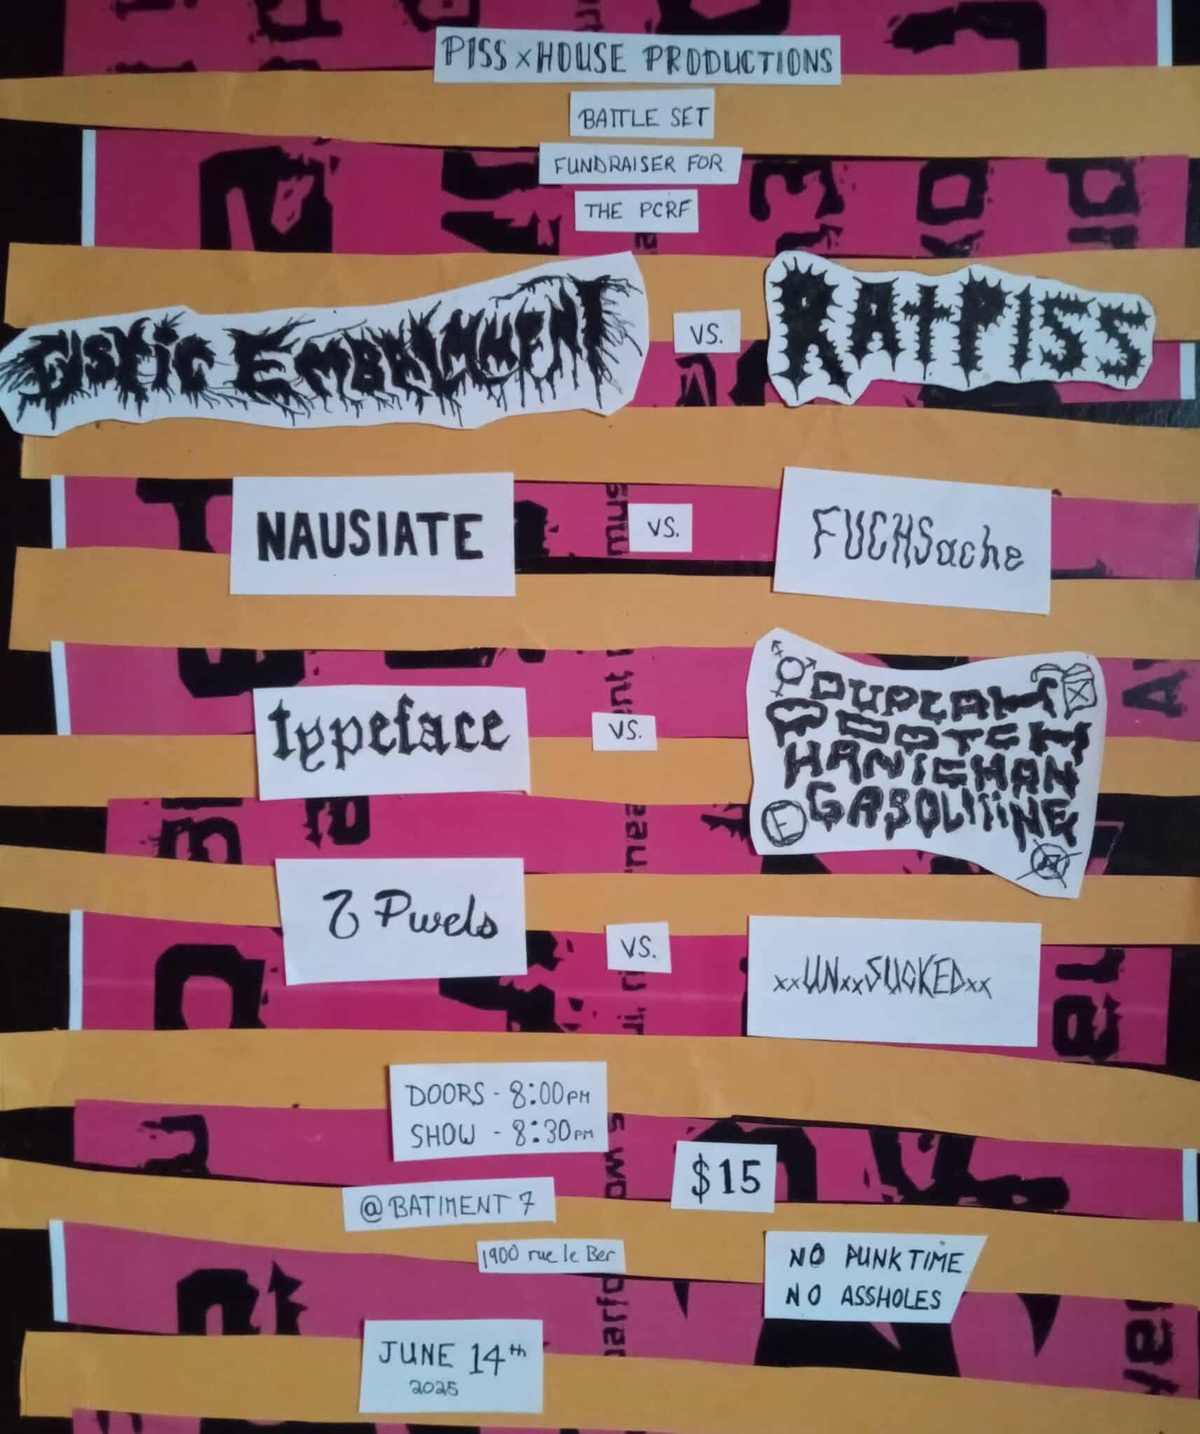 PISS x HOUSE PRODUCTIONS
BATTLE SET
FUNDRAISER FOR
THE PCRF
EMBALMMENT
VS.
RATPISS
NAUSIATE
VS.
FUCHSache
typeface
VS.
DUPLAN
HANICHAN
GASOLIIINE
E
Pwels
VS.
xxUNxxSUCKEDxx
DOORS - 8:00PM
SHOW - 8:30PM
$15
@ BATIMENT 7
1900 rue le Ber
NO PUNK TIME
NO ASSHOLES
JUNE 14th
2025